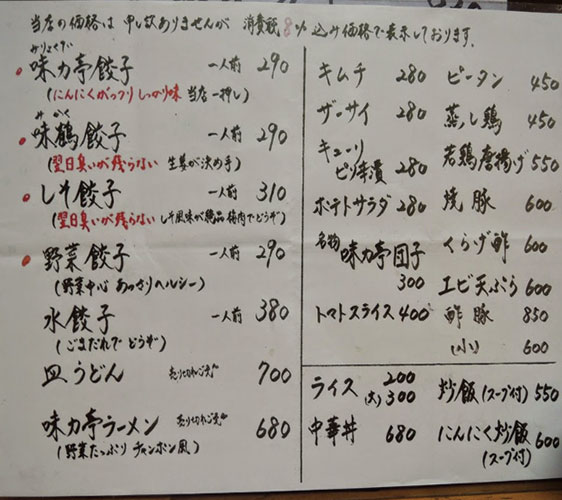 当店の価格は 申し訳ありませんが 消費税8% 込み価格で表示しております.
みりょくてい
味力亭餃子 一人前 290
(にんにくがっつり しっかり味 当店一押し)
みかく
味鶴餃子 一人前 290
(翌日臭いが残らない 生姜が決め手)
しそ餃子 一人前 310
(翌日臭いが残らない しそ風味が絶品 梅肉でどうぞ)
野菜餃子 一人前 290
(野菜中心 あっさりヘルシー)
水餃子 一人前 380
(ごまだれで どうぞ)
皿うどん 売り切れご免 700
味力亭ラーメン 売り切れご免 680
(野菜たっぷり チャンポン風)
キムチ 280
ザーサイ 280
キューリ
ピリ辛漬 280
ポテトサラダ 280
名物 味力亭団子
300
トマトスライス 400
ピータン 450
蒸し鶏 450
若鶏唐揚げ 550
焼豚 600
くらげ酢 600
エビ天ぷら 600
酢豚 850
(小) 600
ライス 200
(大) 300
中華丼 680
炒飯 (スープ付) 550
にんにく炒飯 600
(スープ付)